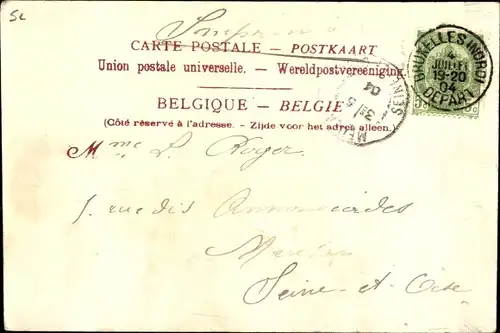 SL
CARTE POSTALE – POSTKAART
Union postale universelle. – Wereldpostvereeniging.
BELGIQUE – BELGIE
(Côté réservé à l'adresse. – Zijde voor het adres alleen.)
BRUXELLES (NORD)
4
JUILLET
19-20
04
DEPART
Mme L. Roger
rue des Annonciades
Seine-et-Oise